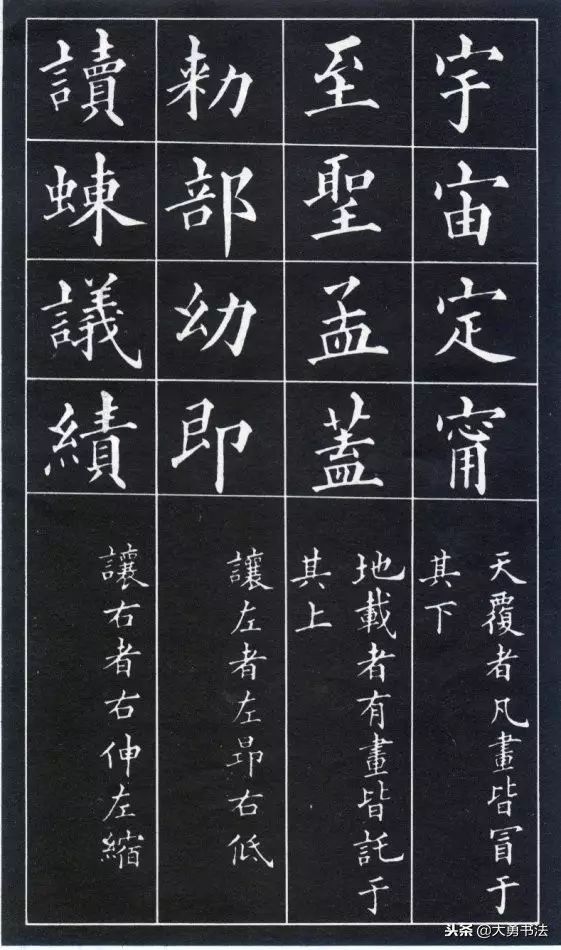 宇宙定甯
天覆者凡畫皆冒于
其下
至聖孟蓋
地載者有畫皆託于
其上
勑部幼即
讓左者左昂右低
讀蝀議績
讓右者右伸左縮
头条 @大勇书法